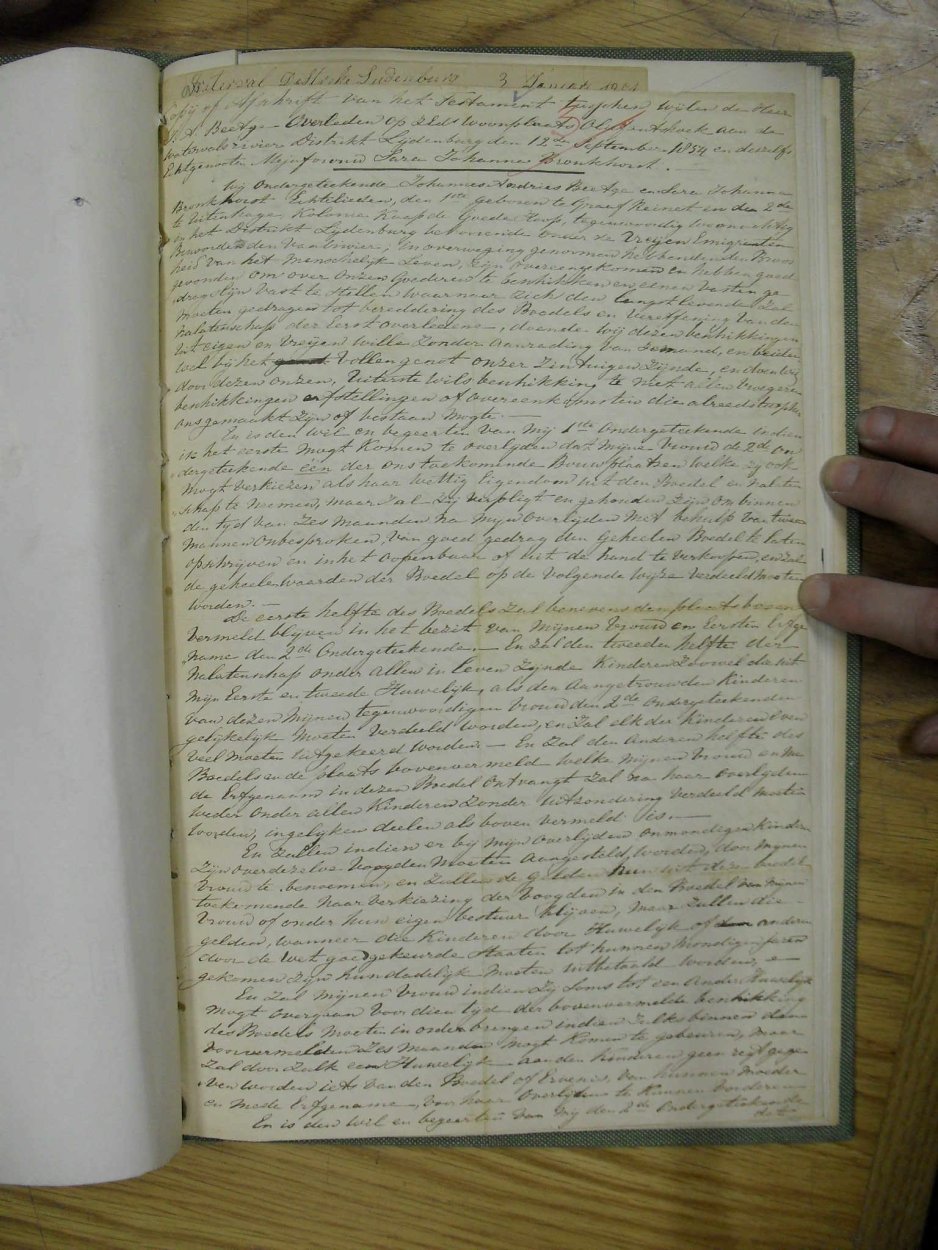 Waterval Distrikt Lydenburg 3 Januarij
Copij of Afschrift van het Testament wijlen den Heer
J. A. Beetge - Overleden op Zeld woonplaats Olifantshoek aan de
Watervalsrivier Distrikt Lydenburg den 12de September 1854 en deszelfs
Echtgenoote Mejufvrouw Sara Johanna Bronkhorst.
Wij Ondergeteekende Johannes Andries Beetge en Sara Johanna
Bronkhorst Echtelieden, den 1ste geboren te Graaf Reinet en den 2de
te Uitenhage, Kolonie Kaap de Goede Hoop, tegenwoordig woonachtig
in het Distrikt Lydenburg behoorende onder de Vrijen Emigranten
Bewoorden van Envier; In overweging genomen hebbende den Broos
heid van het Menschelijk Leven, zijn overeengekomen en hebben goed
gevonden om over Onzen Goederen te beschikken en eenen vasten ge
dragslijn vast te stellen waarnaar zich den langstlevende zal
moeten gedragen tot bereddering des Boedels en Vereffening van den
Nalatenschap der Eerst Overledene, doende wij dezen beschikkingen
uit eigen en Vrijen Wille zonder aanrading van Iemand, en beiden
wel bij het Vollen genot onzer Zintuigen Zijnde, en doen
door dezen onzen, Uiterste Wils beschikking te niet allen vroegere
beschikkingen erfstellingen of overeenkomsten die alreeds
ons gemaakt zijn of bestaan mogte. —
En is den Wil en begeerte van Mij 1ste Ondergeteekende indien
ik het eerste mogt Komen te overlyden dat Mijne Vrouw de 2de on
dergeteekende een der ons toekomende Bouwplaatsen welke zy ook
Mogt verkiezen als haar wettig Eigendom uit den Boedel en nalaten
schap te nemen, maar zal zy verpligt en gehouden zijn om binnen
den tyd van Zes Maanden na mijn overlijden met behulp van twee
Mannen onbesproken, van goed gedrag den geheelen Boedel te laten
opschrijven en in het oopenbaar of uit de hand te verkoopen, en zal
de geheelen waarden der Boedel op de volgende wijze verdeeld moeten
worden. —
De eerste helfte des Boedels zal benevens den plaats boven
vermeld blijven in het bezit van Mijnen Vrouw en Eersten Erfge
name den 2de Ondergeteekende. — En zal den tweeden helfte der
Nalatenschap onder Allen in leven Zynde Kinderen Zoowel die uit
Mijn Eerste en tweede Huwelijk, als den Aangetrouwden Kinderen
van dezen Mijnen tegenwoordigen Vrouw den 2de Ondergeteekenden
gelijkelijk moeten verdeeld worden, en zal elk der Kinderen Even
veel moeten uitgekeerd worden. — En zal den anderen helfte des
Boedels en de plaats bovenvermeld welke Mijnen Vrouw en Me
de Erfgenaam in dezen Boedel ontvangt zal na haar overlyden
weder onder allen Kinderen zonder uitzondering verdeeld moeten
worden, in gelyken deelen als boven vermeld is. —
En zullen indien er bij mijn overlijden onmondigen Kinderen
zijn over dezelve Voogden moeten aangesteld worden, door mijnen
Vrouw te benoemen, en zullen de gelden hun uit deze boedel
toekomende naar verkiezing der Voogden in den Boedel van mijnen
Vrouw of onder hun eigen bestuur blijven, maar zullen die
gelden, wanneer die Kinderen door Huwelijk of anderen
door de wet goedgekeurde Staaten tot hunnen Mondigen jaren
gekomen zijn hun dadelijk moeten uitbetaald worden, —
En zal mijnen Vrouw indien zy soms tot een ander Huwelijk
mogt overgaan voor dien tyd der bovenvermelde beschikking
des Boedels moeten in order brengen indien zulks binnen den
voorvermelden Zes Maanden mogt komen te gebeuren, maar
zal door zulk een Huwelijk aan den kinderen geen regt gege
ven worden iets van den Boedel of Ervenis, van hunnen Moeder
en Mede Erfgename, voor haar Overlijden te Kunnen vorderen
En is den wil en begeerte van mij den 2de Ondergeteekende